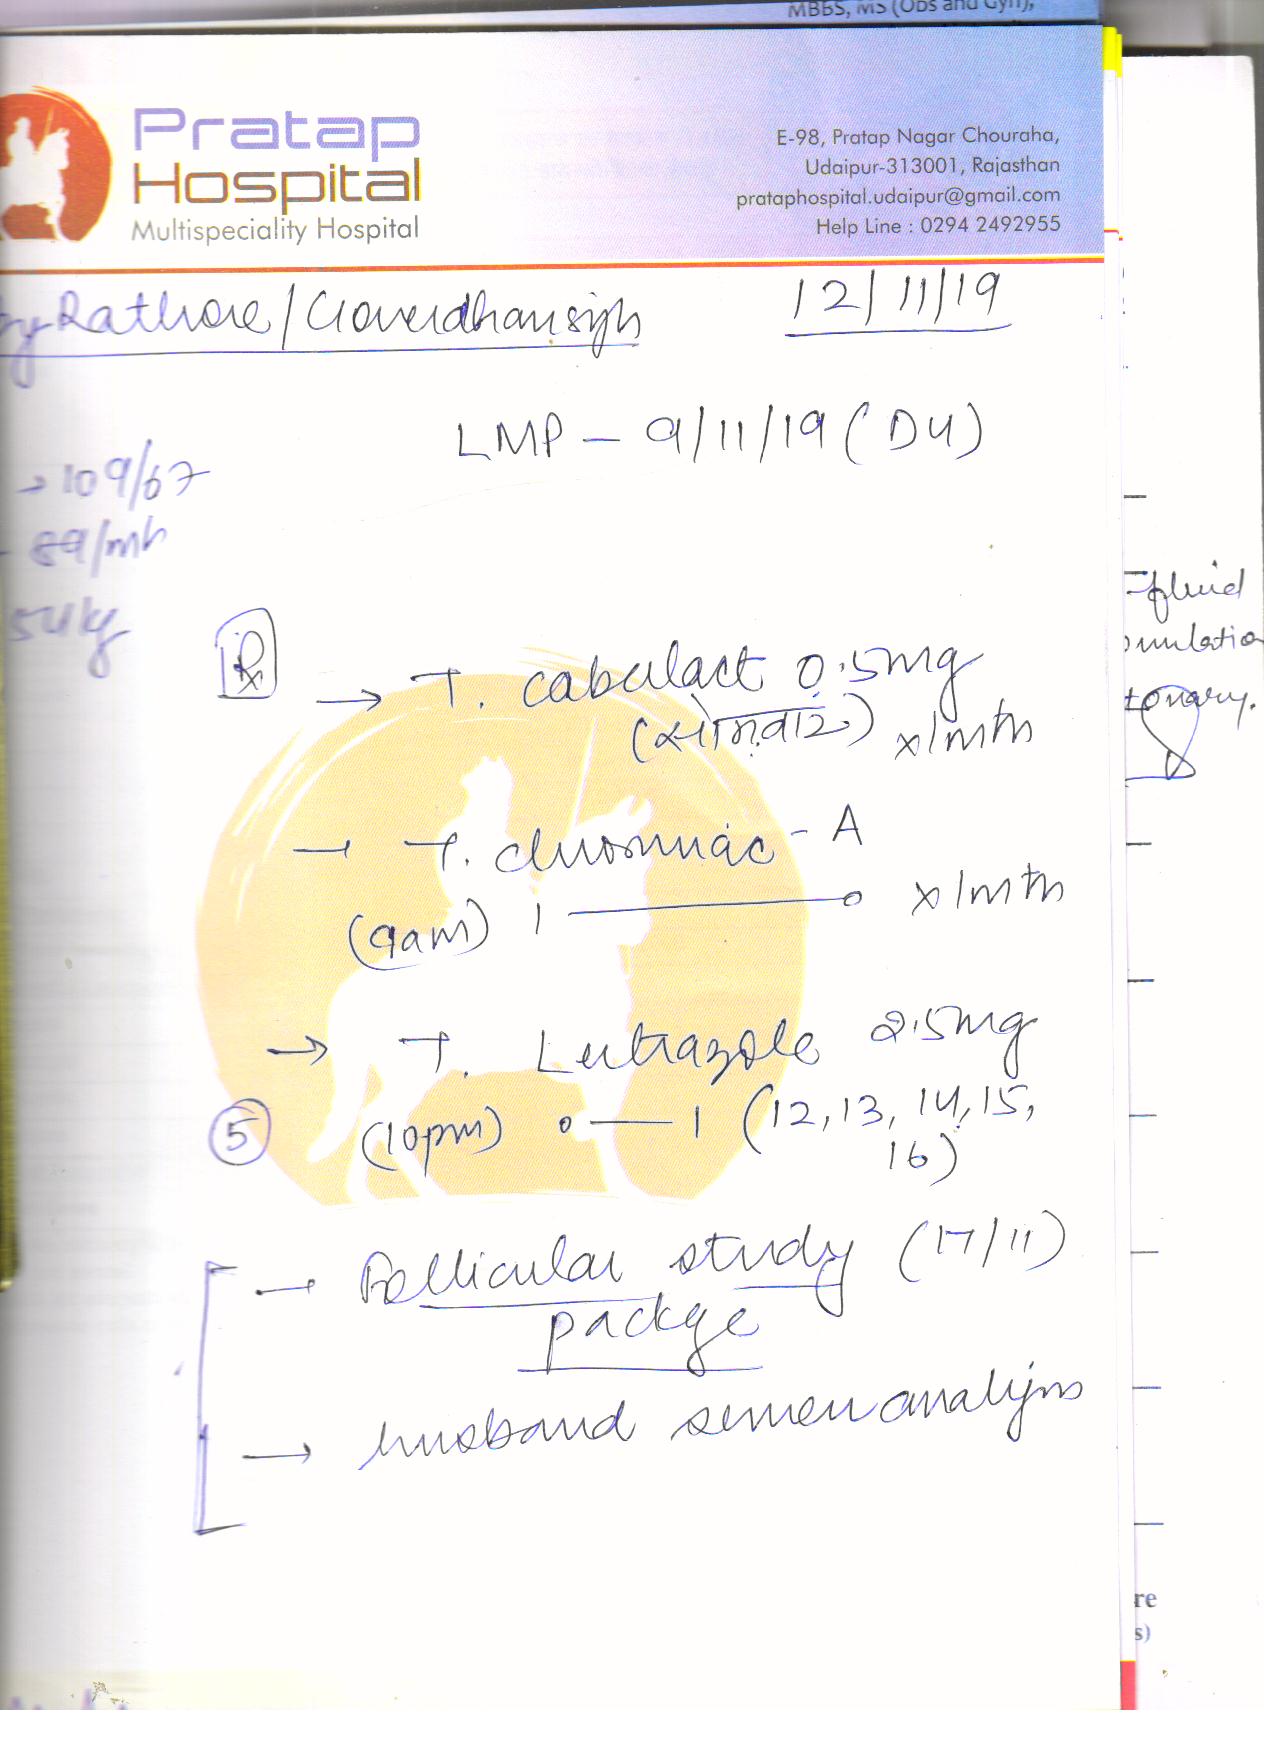 MBBS, MS (Obs and Gyn),
Pratap
Hospital
Multispeciality Hospital
E-98, Pratap Nagar Chouraha,
Udaipur-313001, Rajasthan
prataphospital.udaipur@gmail.com
Help Line : 0294 2492955
Rathore/Goverdhansigh
12/11/19
LMP - 9/11/19 (D4)
→ 109/67
89/mh
54kg
Rx
→ T. cabulact 0.5mg
(शनिवार) x1mth
- T. - A
(9am) 1 — 0 x1mth
→ T. Letrazole 2.5mg
5 (10pm) 0 — 1 (12, 13, 14, 15,
16)
→ Follicular study (17/11)
packge
→ husband semen analysis
fluid
re
s)